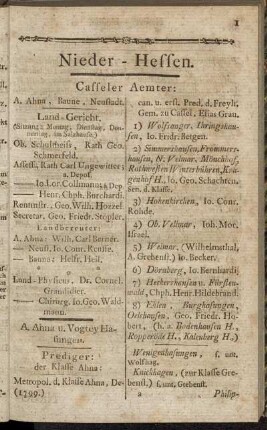 1
Nieder-Hessen.
Casseler Aemter:
A. Ahna, Baune, Neustadt.
Land-Gericht.
(Sitzung: Montag, Dienstag, Don-
nerstag, im Salzhause.)
Ob. Schultheis, Rath Geo.
Schmerfeld.
Assess. Rath Carl Ungewitter;
a. Depost.
— Io. Lor. Collmann, a Dep.
— Henr. Chph. Burchardi.
Rentmstr. Geo. Wilh. Hözzel
Secretar, Geo. Friedr. Stöpler.
Landbereuter:
A. Ahna: Wilh. Carl Berner.
— Neust. Io. Conr. Reuse.
— Baune: Helfr. Heil.
Land-Physicus, Dr. Cornel.
Grandidier.
— Chirurg. Io. Geo. Wald-
mann.
A. Ahna u. Vogtey Ha-
sungen.
Prediger:
der Klasse Ahna:
Metropol. d. Klasse Ahna, De-
(1799.)
can. u. erst. Pred. d. Freyh.
Gem. zu Cassel, Esias Grau.
1) Wolfsanger, Ihringshau-
sen, Io. Fridr. Betgen.
2) Simmershausen, Frommers-
hausen, N. Velmar, Mönchhof,
Rothwesten Winterbühren, Knik-
hagen, Io. Geo. Schachten,
Sen. d. Klasse.
3) Hohenkirchen, Io. Conr.
Rohde.
4) Ob. Vellmar, Ioh. Mor.
Israel.
5) Weimar, (Wilhelmsthal,
A. Grebenst.) Io. Becker.
6) Dörnberg, Io. Bernhardi
7) Heckershausen u. Fürsten-
wald, Chph. Henr. Hildebrand
8) Ehlen, Burghasungen,
Oelshausen, Geo. Friedr. Ho-
bert, (h. a. Bodenhausen H.,
Ropperode H., Kalenberg H.)
Wenigenhasungen, s. um.
Wolfhag.
Knickhagen, (zur Klasse Gre-
benst.) s. unt. Grebenst.
a
Philip-